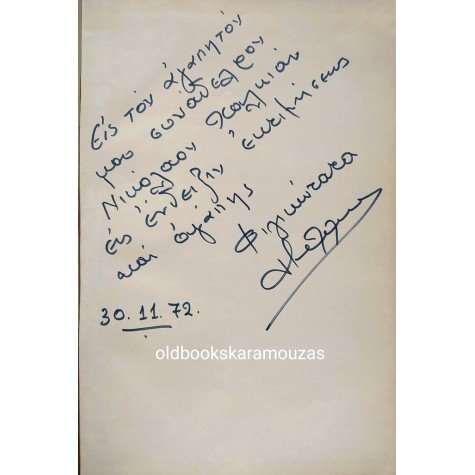 Εἰς τὸν ἀγαπητόν
μου συνάδελφον
Νικόλαον
εἰς ἔνδειξιν ἐκτιμήσεως
καὶ ἀγάπης
Φιλικώτατα
30.11.72.
oldbookskaramouzas